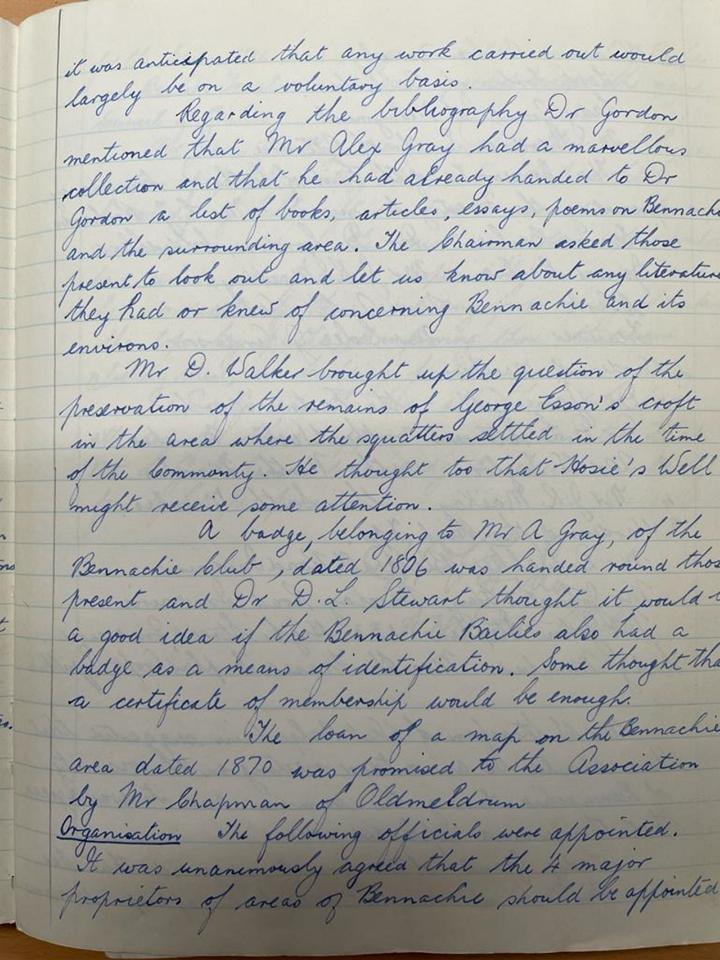 it was anticipated that any work carried out would
largely be on a voluntary basis.
Regarding the bibliography Dr Gordon
mentioned that Mr Alex Gray had a marvellous
collection and that he had already handed to Dr
Gordon a list of books, articles, essays, poems on Bennach
and the surrounding area. The Chairman asked those
present to look out and let us know about any literature
they had or knew of concerning Bennachie and its
environs.
Mr D. Walker brought up the question of the
preservation of the remains of George Esson's croft
in the area where the squatters settled in the time
of the Commonty. He thought too that Hosie's Well
might receive some attention.
A badge, belonging to Mr A Gray, of the
Bennachie Club, dated 1806 was handed round thos
present and Dr D.L. Stewart thought it would
a good idea if the Bennachie Bailies also had a
badge as a means of identification. Some thought tha
a certificate of membership would be enough.
The loan of a map on the Bennachie
area dated 1870 was promised to the Association
by Mr Chapman of Oldmeldrum
Organisation The following officials were appointed.
It was unanimously agreed that the 4 major
proprietors of areas of Bennachie should be appointed